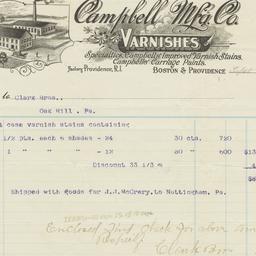 Campbell Mfg. Co.
VARNISHES
Specialties, Campbell's Improved Varnish Stains.
Campbell's Carriage Paints.
Factory Providence, R.I.
BOSTON & PROVIDENCE
to Clark Bros.,
Oak Hill, Pa.
1 case varnish stains containing
1/2 pts. each 6 shades - 24 30 cts. 720
1 " " " - 12 50 " 600 $13
Discount 33 1/3 % 4
$8
Shipped with goods for J.J.McCrery. to Nottingham, Pa.
Enclosed find check for above am
Respctf
Clark Bros